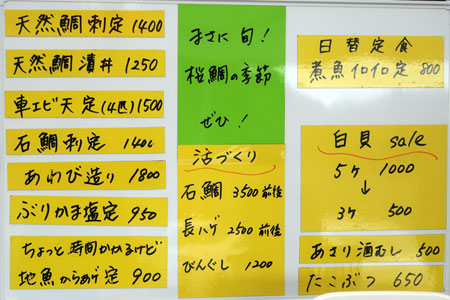 天然鯛刺定 1400
天然鯛漬丼 1250
車エビ天定(4匹)1500
石鯛刺定 1400
あわび造り 1800
ぶりかま塩定 950
ちょっと時間かかるけど
地魚からあげ定 900
まさに旬!
桜鯛の季節
ぜひ!
活づくり
石鯛 3500前後
長ハゲ 2500前後
びんぐし 1200
日替定食
煮魚イロイロ定 800
白貝 sale
5ケ 1000
↓
3ケ 500
あさり酒むし 500
たこぶつ 650